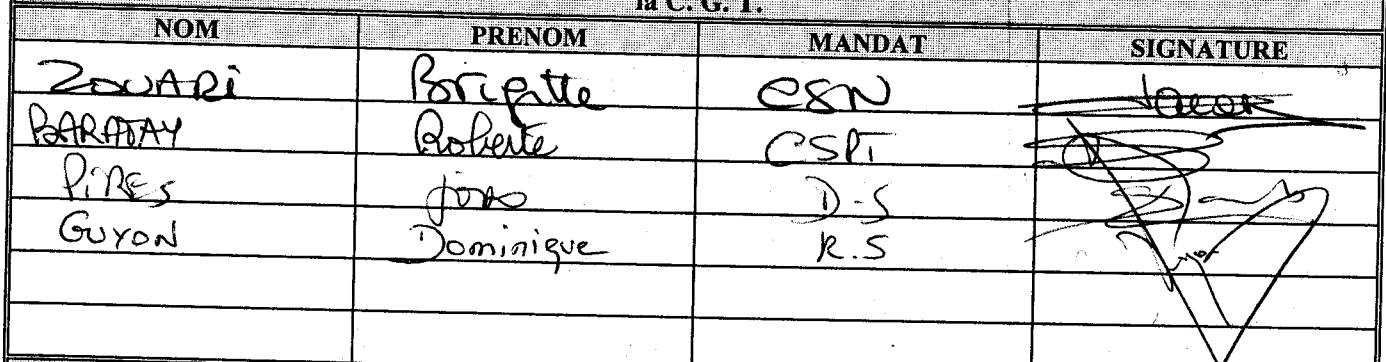 la C. G. T.
NOM PRENOM MANDAT SIGNATURE
ZOUARi Brigitte CSN
BARATAY Roberte CSPT
PiRES João D-S
GUYON Dominique R.S